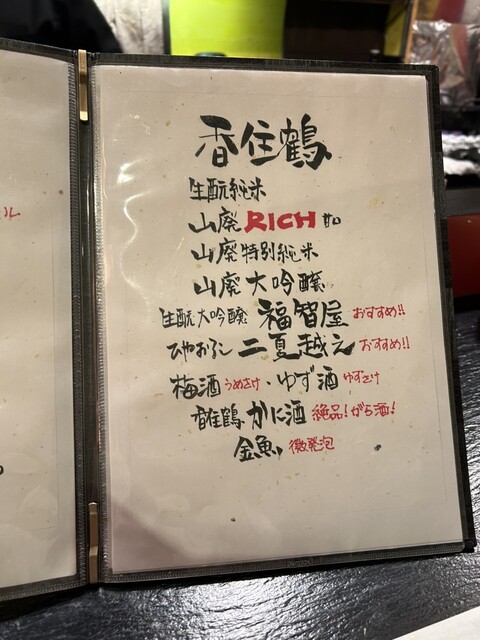 香住鶴
生酛純米
山廃 RICH 甘
山廃 特別純米
山廃 大吟醸
生酛大吟醸 福智屋 おすすめ!!
ひやおろし 二夏越え おすすめ!!
梅酒 うめさけ・ゆず酒 ゆずさけ
香住鶴 かに酒 絶品!がら酒!
金魚 微発泡
ル